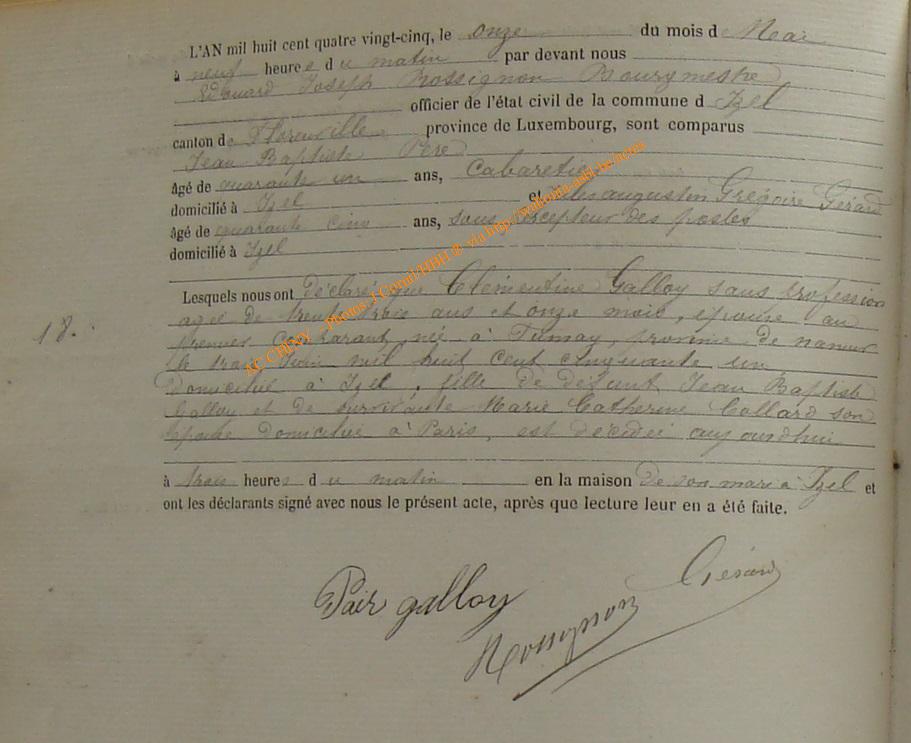 L'AN mil huit cent quatre vingt-cinq, le onze du mois d Mai
à neuf heures du matin par devant nous
Edouard Joseph Rossignon Bourgmestre
officier de l'état civil de la commune d Izel
canton de Florenville province de Luxembourg, sont comparus
Jean Baptiste
âgé de quarante un ans, Cabaretier
domicilié à Izel et Jules augustin Grégoire Gérard
âgé de quarante cinq ans, sous percepteur des postes
domicilié à Izel
Lesquels nous ont déclaré que Clémentine Galloy sans profession
agée de trente trois ans et onze mois, épouse au
premier comparant, née à province de namur
le trois Juin mil huit cent cinquante un
domiciliée à Izel, fille de défunt Jean Baptiste
Galloy et de survivante Marie Catherine Collard son
épouse domiciliée à Paris, est décédée aujourdhui
à trois heures du matin en la maison de son mari à Izel et
ont les déclarants signé avec nous le présent acte, après que lecture leur en a été faite.
18.
galloy
Gérard
Rossignon
AC CHINY - Photos J Cornil/HBH © via http://wallonia-asbl.be/actes